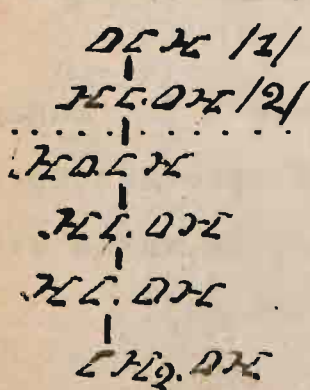 OCH /1/
HC.OH /2/
HO.CH
HC.OH
HC.OH
CH2.OH